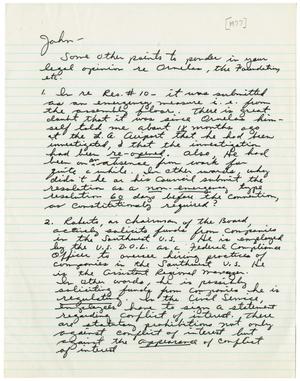 [1977]
John -
Some other points to ponder in your
legal opinion re Ornelas, the Foundation,
etc.
1. In re Res. #10 - it was submitted
as an emergency measure i.e. from
the assembly floor. There is great
doubt that it was since Ornelas him-
self told me about 10 months ago
at the D.C. airport that he had been
investigated, & that the investigation
had been re-opened. Also, He had
been on absence from work for
quite a while. In other words, why
didn't he as his council submit the
resolution as a non-emergency type
resolution 60 days before the convention,
as constitutionally required?
2. Roberto, as Chairman of the Board
actively solicits funds from companies
in the Southwest U.S. He is employed
by the U.S. D.O.L. as a Federal Compliance
Officer to oversee hiring practices of
companies in the Southwest U.S. He
is the Assistant Regional manager.
In other words, he is possibly
soliciting funds from companies he is
regulating. In the Civil Service
have to sign a statement
regarding conflict of interest. There
are statutory prohibitions not only
against conflict of interest but
against the appearance of conflict
of interest